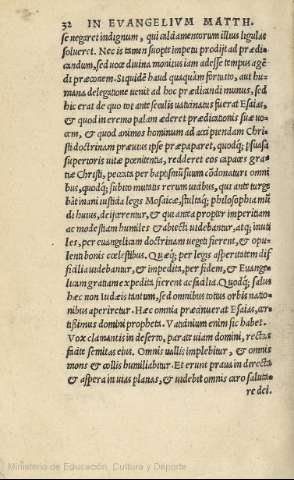 32 IN EVANGELIVM MATTH.
se negaret indignum, qui calciamentorum illius ligulas
solueret. Nec is tamen suopte impetu prodijt ad prædi-
candum, sed voce diuina monitus iam adesse tempus agẽ
di præconem. Siquidẽ haud quaquàm fortuito, aut hu-
mana delegatione uenit ad hoc prædicandi munus, sed
hic erat de quo tot ante seculis uaticinatus fuerat Esaias,
& quod in eremo palam æderet prædicationis suæ vo-
cem, & quod animos hominum ad accipiendam Chri-
sti doctrinam præuius ipse præpararet, quodq́; suasa
superioris uitæ pœnitentia, redderet eos capaces gra-
tiæ Christi, peccata per baptismũ suum cõdonaturi omni
bus, quodq́; subito mutatis rerum uicibus, qui ante turge
bãt inani iustitia legis Mosaicæ, stultaq́; philosophia mũ
di huius, deijcerentur, & qui antea propter imperitiam
ac modestiam humiles & abiecti uidebantur, atq; inuti
les, per euangelicam doctrinam uegeti fierent, & opu-
lenti bonis cœlestibus. Quæq́; per legis asperitatem dif
ficilia uidebantur, & impedita, per fidem, & Euange-
licam gratiam expedita fierent ac facilia. Quodq́; salus
hæc non Iudæis tantum, sed omnibus totius orbis natio-
nibus aperiretur. Hæc omnia præcinuerat Esaias, cer-
tißimus domini propheta. Vaticinium enim sic habet.
Vox clamantis in deserto, parate uiam domini, rectas
facite semitas eius. Omnis uallis implebitur, & omnis
mons & collis humiliabitur. Et erunt praua in directa
& aspera in vias planas, & uidebit omnis caro saluta-
re dei.
Ministerio de Educación, Cultura y Deporte